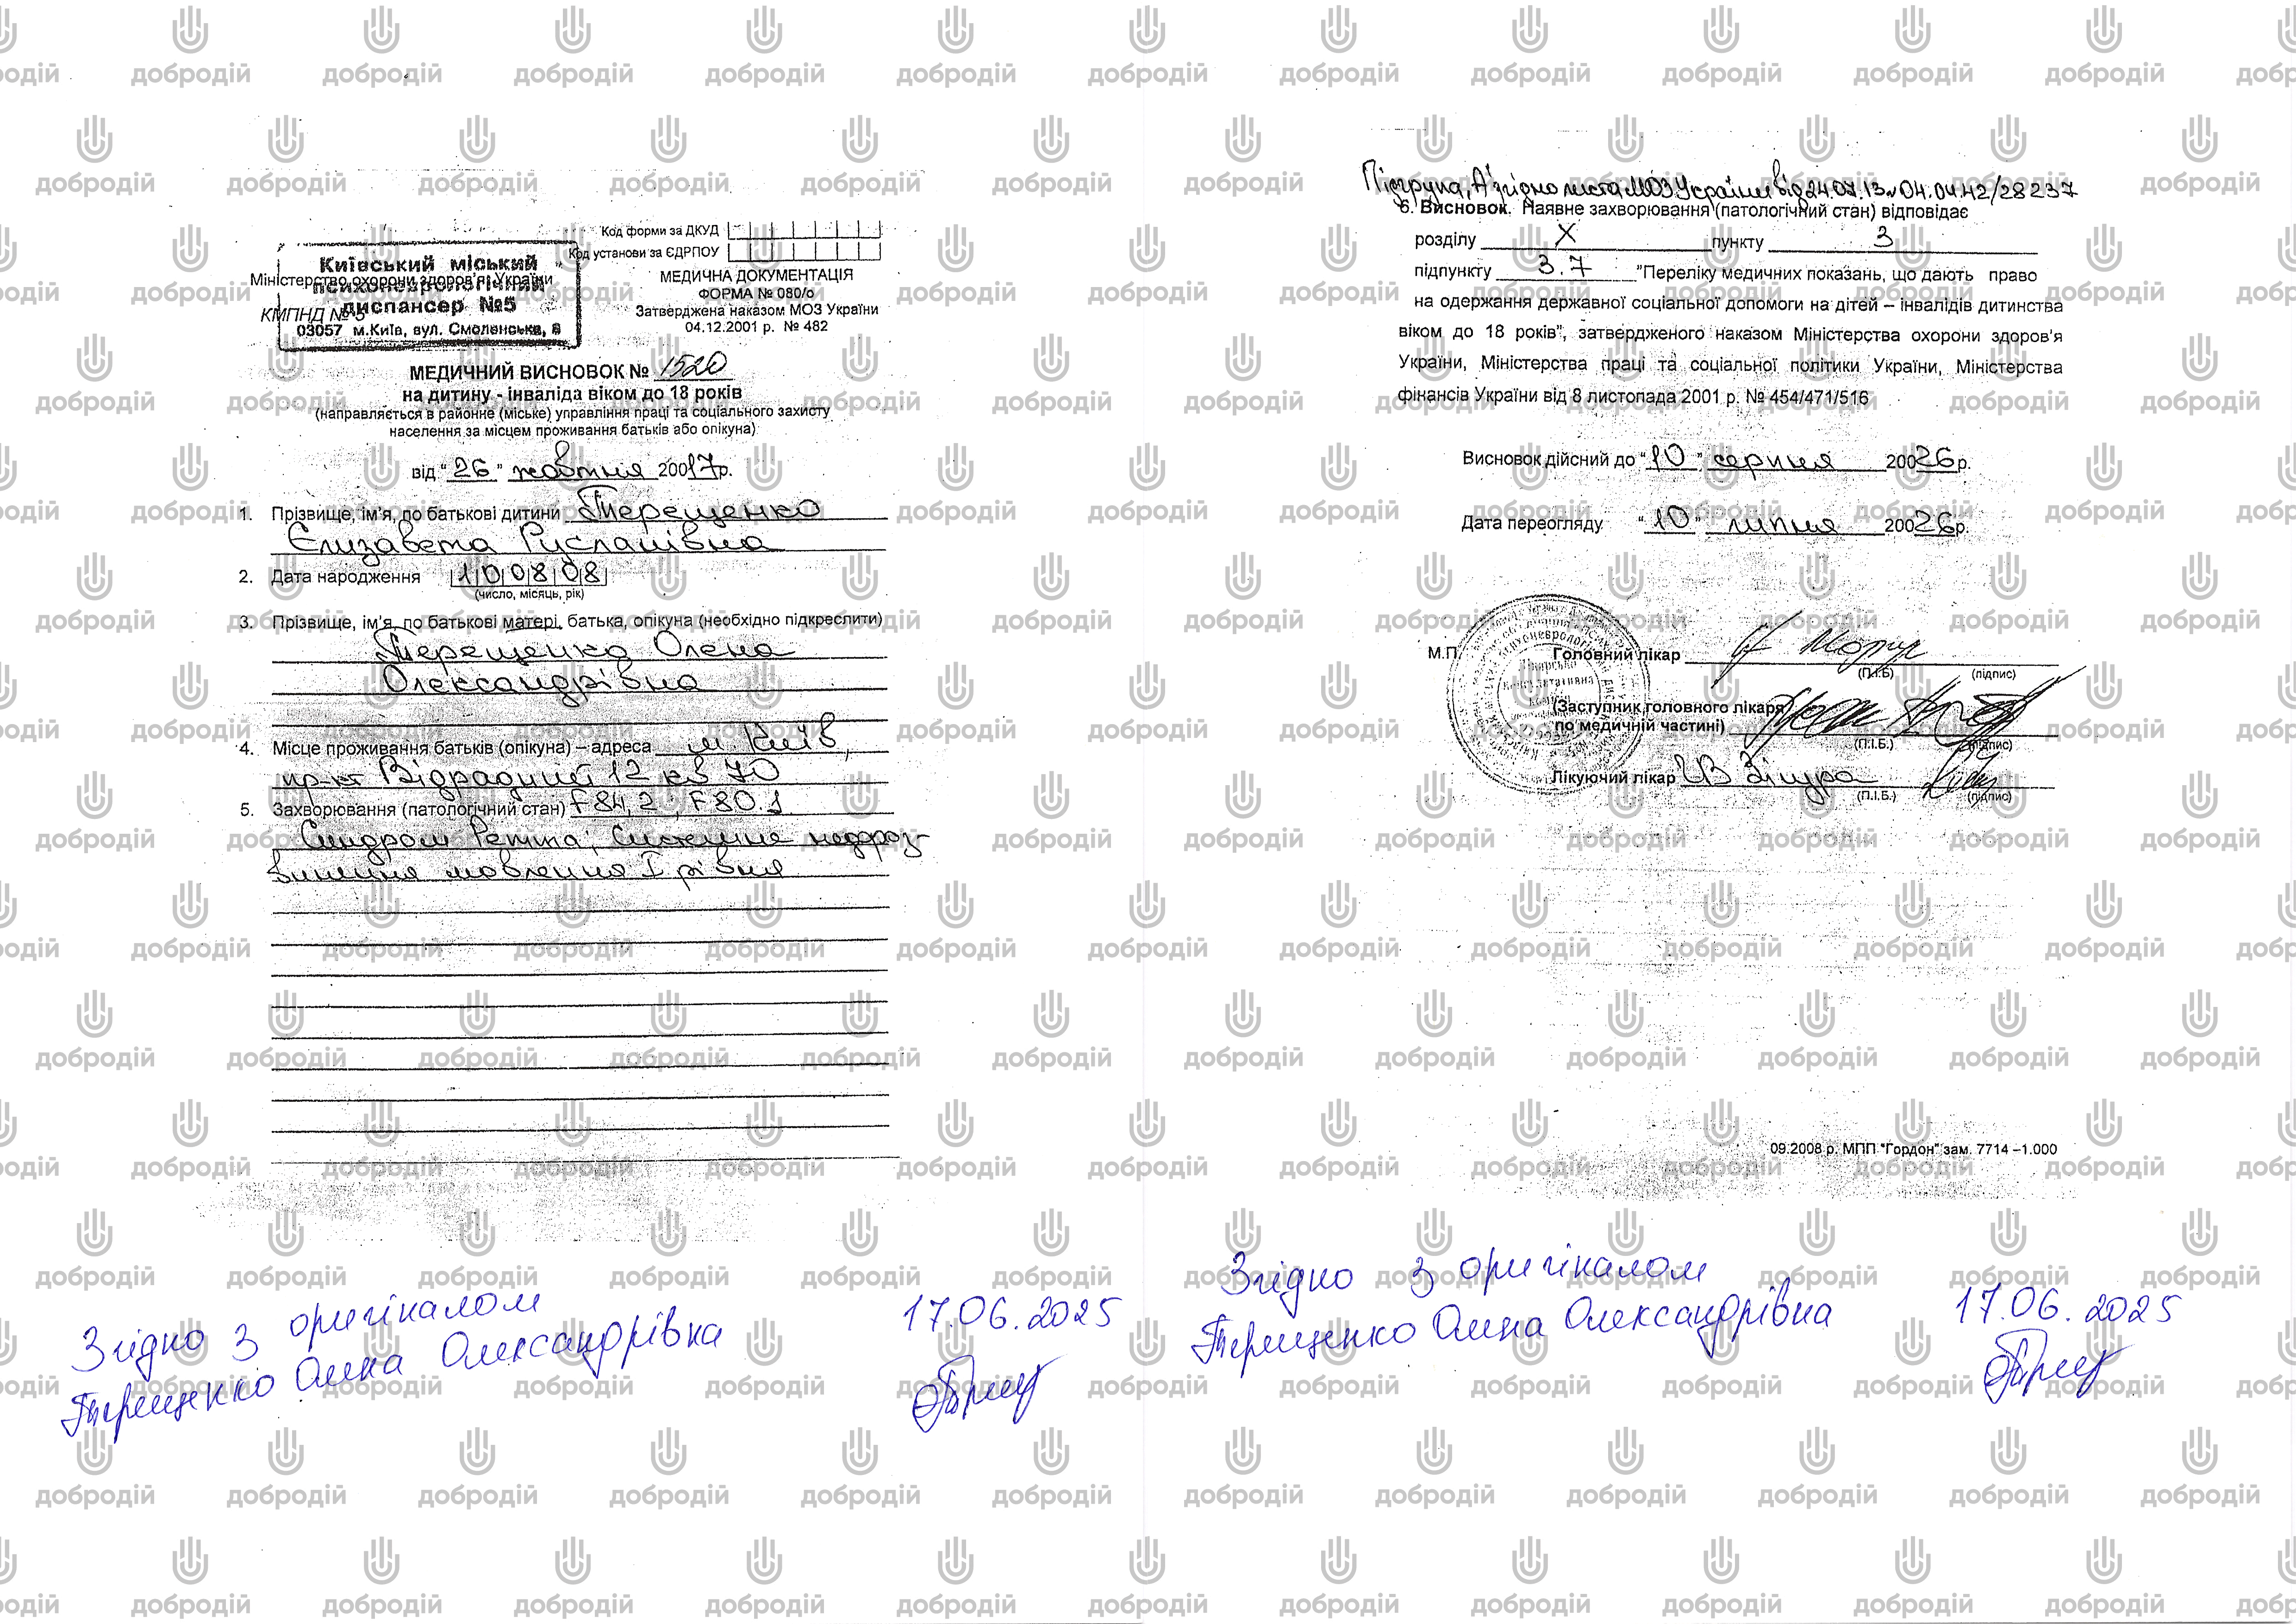 Код форми за ДКУД
Код установи за ЄДРПОУ
Київський міський
психоневрологічний
диспансер №5
03057 м.Київ, вул. Смоленська, 8
Міністерство охорони здоров'я України
КМПНД № 5
МЕДИЧНА ДОКУМЕНТАЦІЯ
ФОРМА № 080/о
Затверджена наказом МОЗ України
04.12.2001 р. № 482
МЕДИЧНИЙ ВИСНОВОК № 1520
на дитину - інваліда віком до 18 років
(направляється в районне (міське) управління праці та соціального захисту
населення за місцем проживання батьків або опікуна)
від "26" жовтня 20017р.
1. Прізвище, ім'я, по батькові дитини Терещенко
Єлизавета Русланівна
2. Дата народження 100808
(число, місяць, рік)
3. Прізвище, ім'я, по батькові матері, батька, опікуна (необхідно підкреслити)
Терещенко Олена
Олександрівна
4. Місце проживання батьків (опікуна) – адреса м Київ,
пр-кт Відрадний 12 кв 70
5. Захворювання (патологічний стан) F 84.2, F 80.1
Синдром Ретта; Системне недороз-
винення мовлення I рівня
Згідно з оригіналом
Терещенко Олена Олександрівна
17.06.2025
Підгрупа "А" згідно листа МОЗ України від 24.07.13 № 04.04.42/28237
6. Висновок. Наявне захворювання (патологічний стан) відповідає
розділу X пункту 3
підпункту 3.7 "Переліку медичних показань, що дають право
на одержання державної соціальної допомоги на дітей – інвалідів дитинства
віком до 18 років", затвердженого наказом Міністерства охорони здоров'я
України, Міністерства праці та соціальної політики України, Міністерства
фінансів України від 8 листопада 2001 р. № 454/471/516
Висновок дійсний до "10" серпня 20026р.
Дата переогляду "10" липня 20026р.
М.П.
Головний лікар
(П.І.Б) (підпис)
(Заступник головного лікаря
по медичній частині)
(П.І.Б.) (підпис)
Лікуючий лікар
(П.І.Б.) (підпис)
09.2008 р. МПП "Гордон" зам. 7714 –1.000
Згідно з оригіналом
Терещенко Олена Олександрівна
17.06.2025
добродій